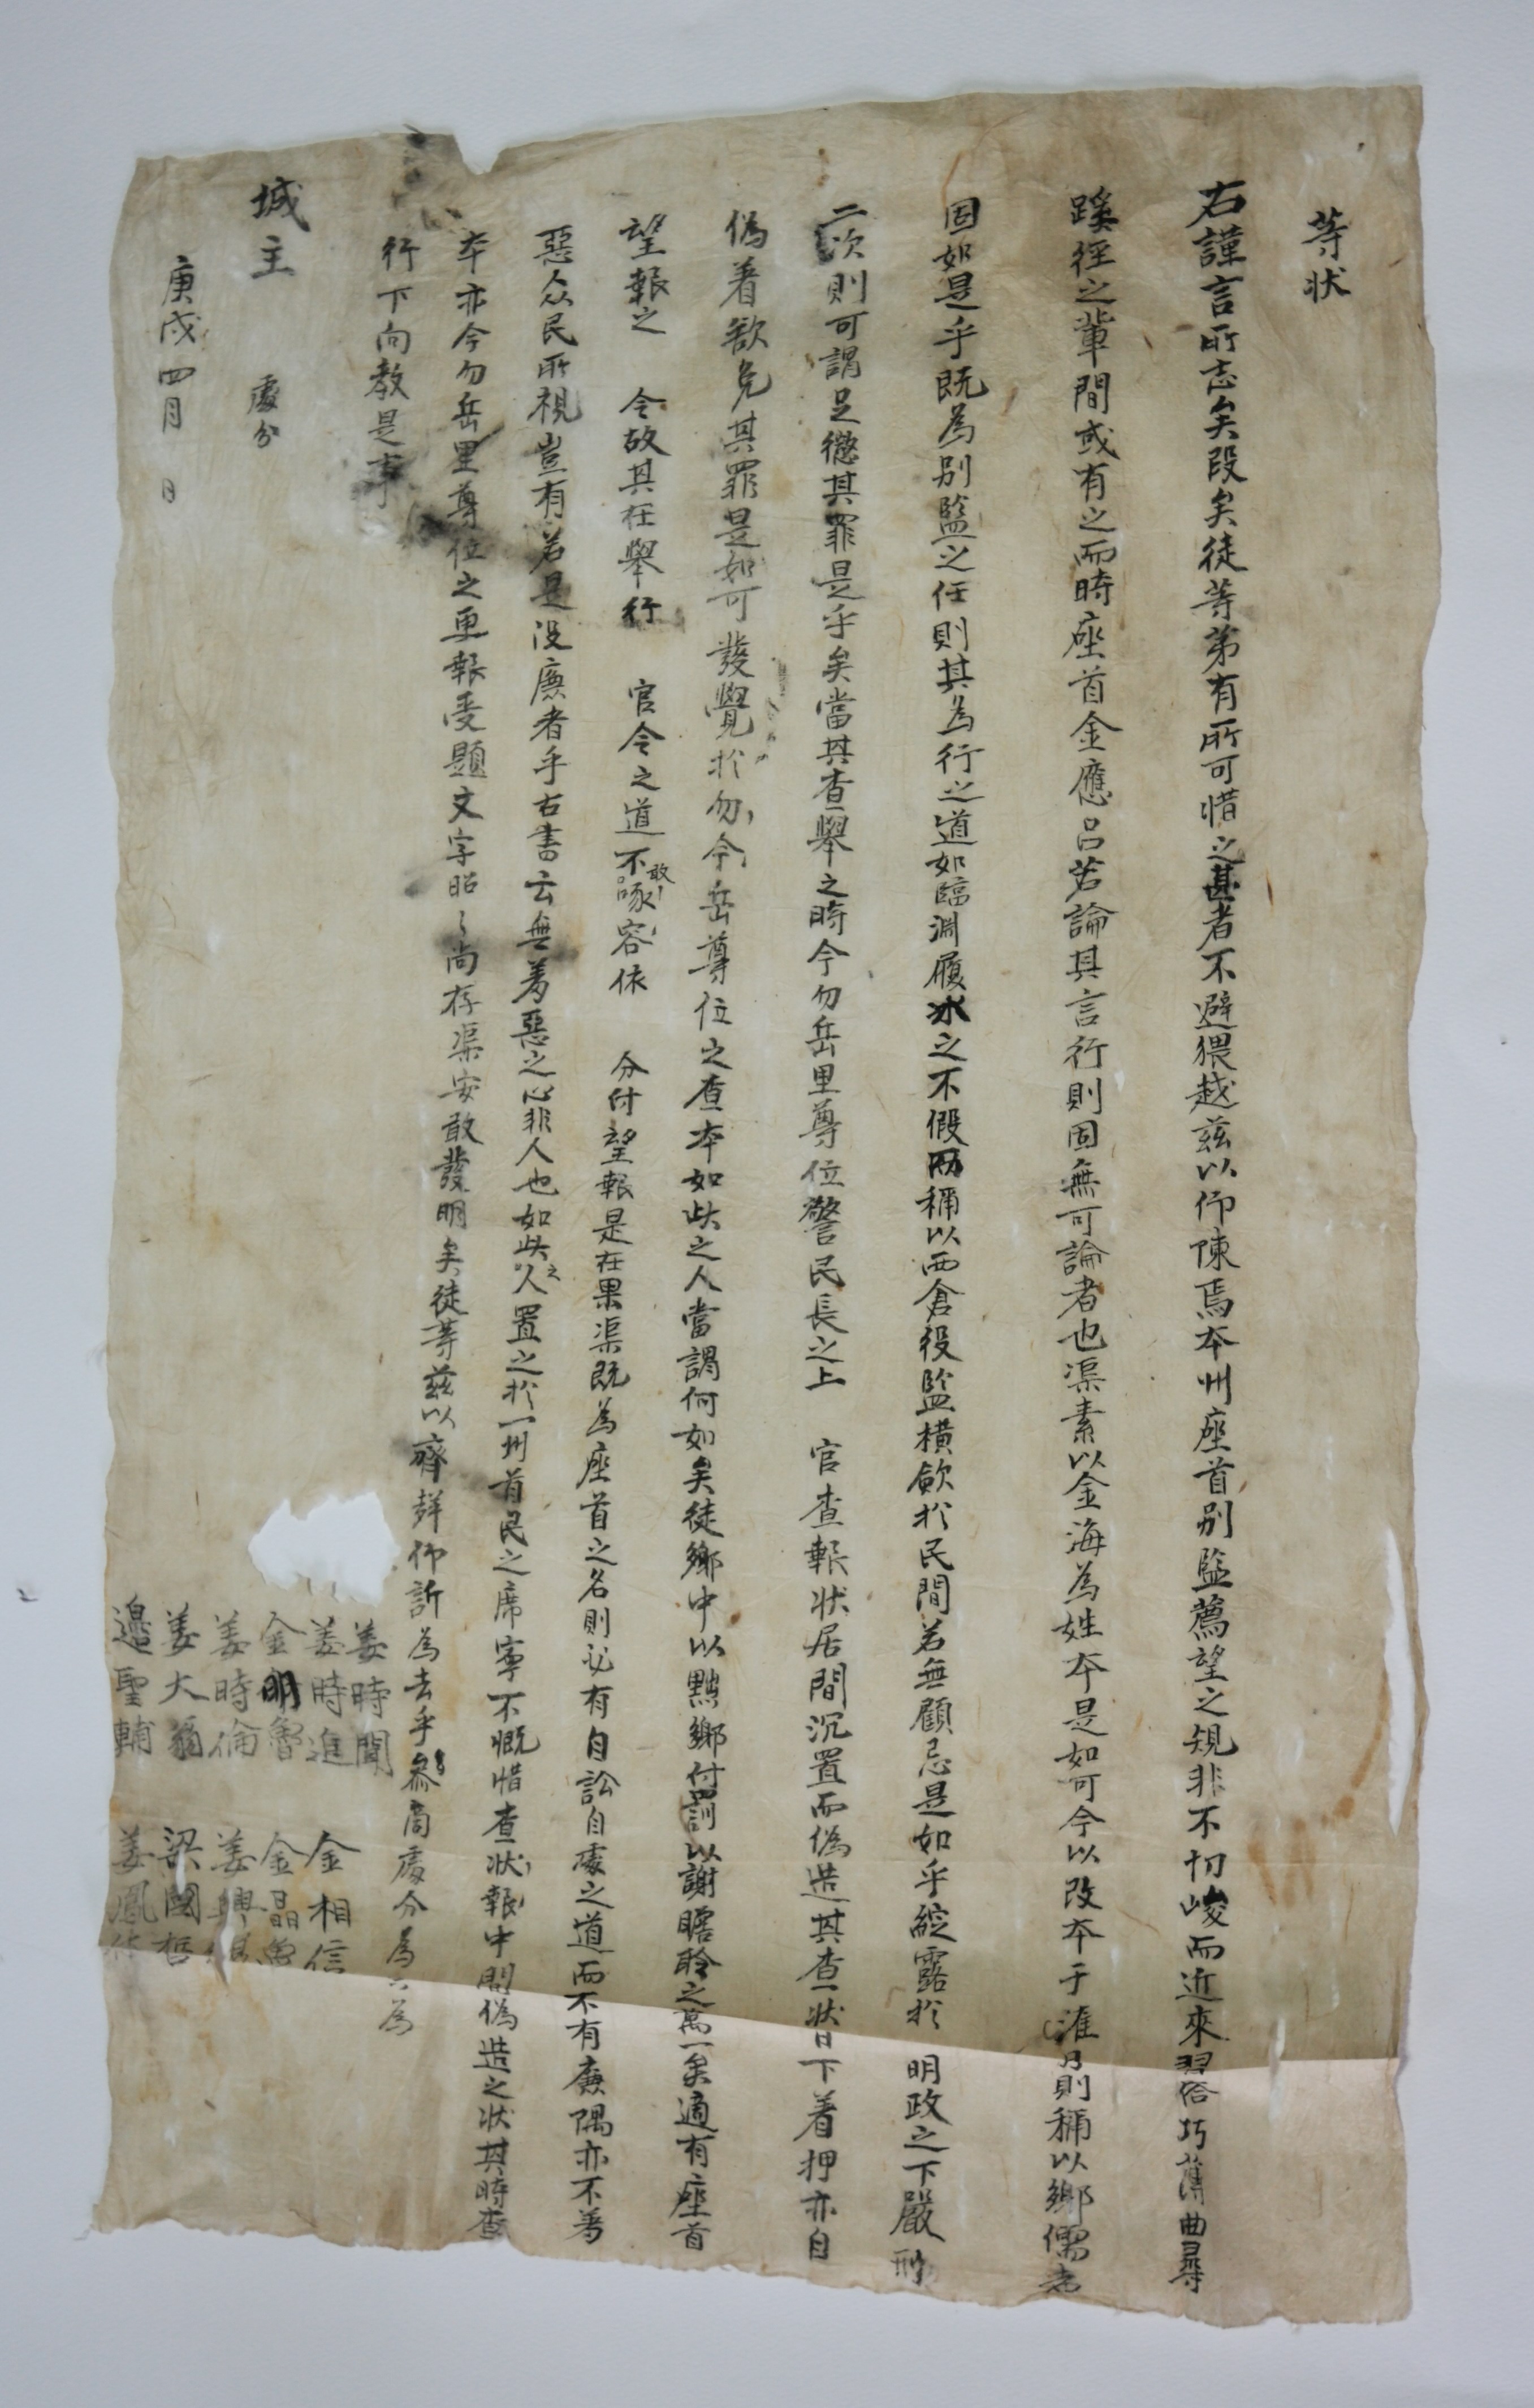 等狀
右謹言所志矣段矣徒等第有所可惜之甚者不避猥越玆以仰陳焉本州座首別監薦望之規非不切峻而近來習俗巧薄曲尋
蹊徑之輩間或有之而時座首金應呂若論其言行則固無可論者也渠素以金海為姓本是如可今以改本于淮月則稱以鄉儒者
固如是乎既為別監之任則其為行之道如臨淵履冰之不假而稱以西倉役監橫斂於民間若無顧忌是如乎綻露於 明政之下嚴刑
二次則可謂足懲其罪是乎矣當其查舉之時今勿岳里尊位警民長之上 官查報狀居間沉置而偽造其查狀日下着押亦自
偽着欲免其罪是如可發覺於勿今岳尊位之查本如此之人當謂何如矣徒鄉中以黜鄉付罰以謝瞻聆之萬一矣適有座首
望報之 令故其在舉行 官令之道不敢啄容依 分付望報是在果渠既為座首之名則必有自訟自處之道而不有廉隅亦不羞
惡人众民所視豈有若是沒廉者乎古書云無羞惡之心非人也如此之人置之於一州首民之席寧不慨惜查狀報中間偽造之狀其時查
本亦今勿岳里尊位之更報受題文字昭〻尚存渠安敢發明矣徒等玆以齊辞仰訴為去乎參商處分為〻為
行下向教是事
城主 處分
庚戌四月 日
姜時聞
姜時進 金相信
金明魯 金晶魯
姜時倫 姜
姜大 梁國哲
邊聖輔 姜鳳